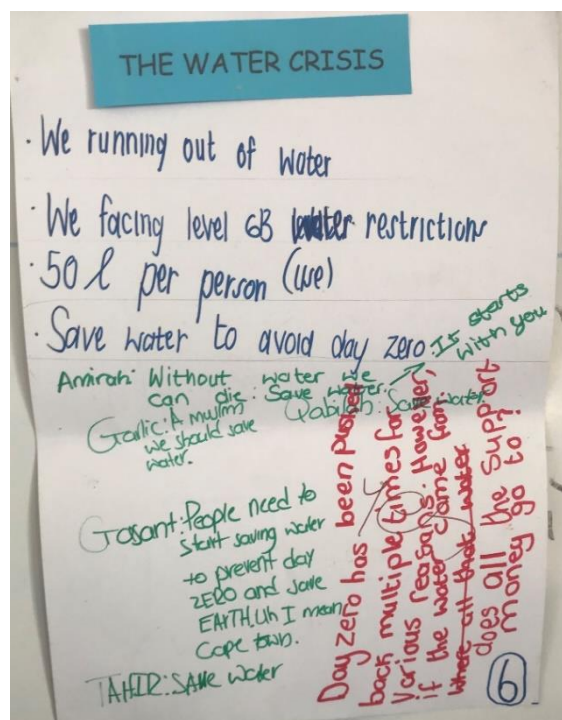 THE WATER CRISIS
· We running out of water
· We facing level 6B water restrictions
· 50 l per person (use)
· Save water to avoid day zero
It starts
with you
Amirah: Without water we
can die. Save water.
Qabilah: Save water
Garlic: A muslim
we should save
water.
Gasant: People need to
start saving water
to prevent day
ZERO and save
EARTH. Uh I mean,
Cape town.
TAHIR: SAVE water
Day zero has been pushed
back multiple times for
various reasons. However,
if the water came from
where all that water
does all the support
money go to?
6